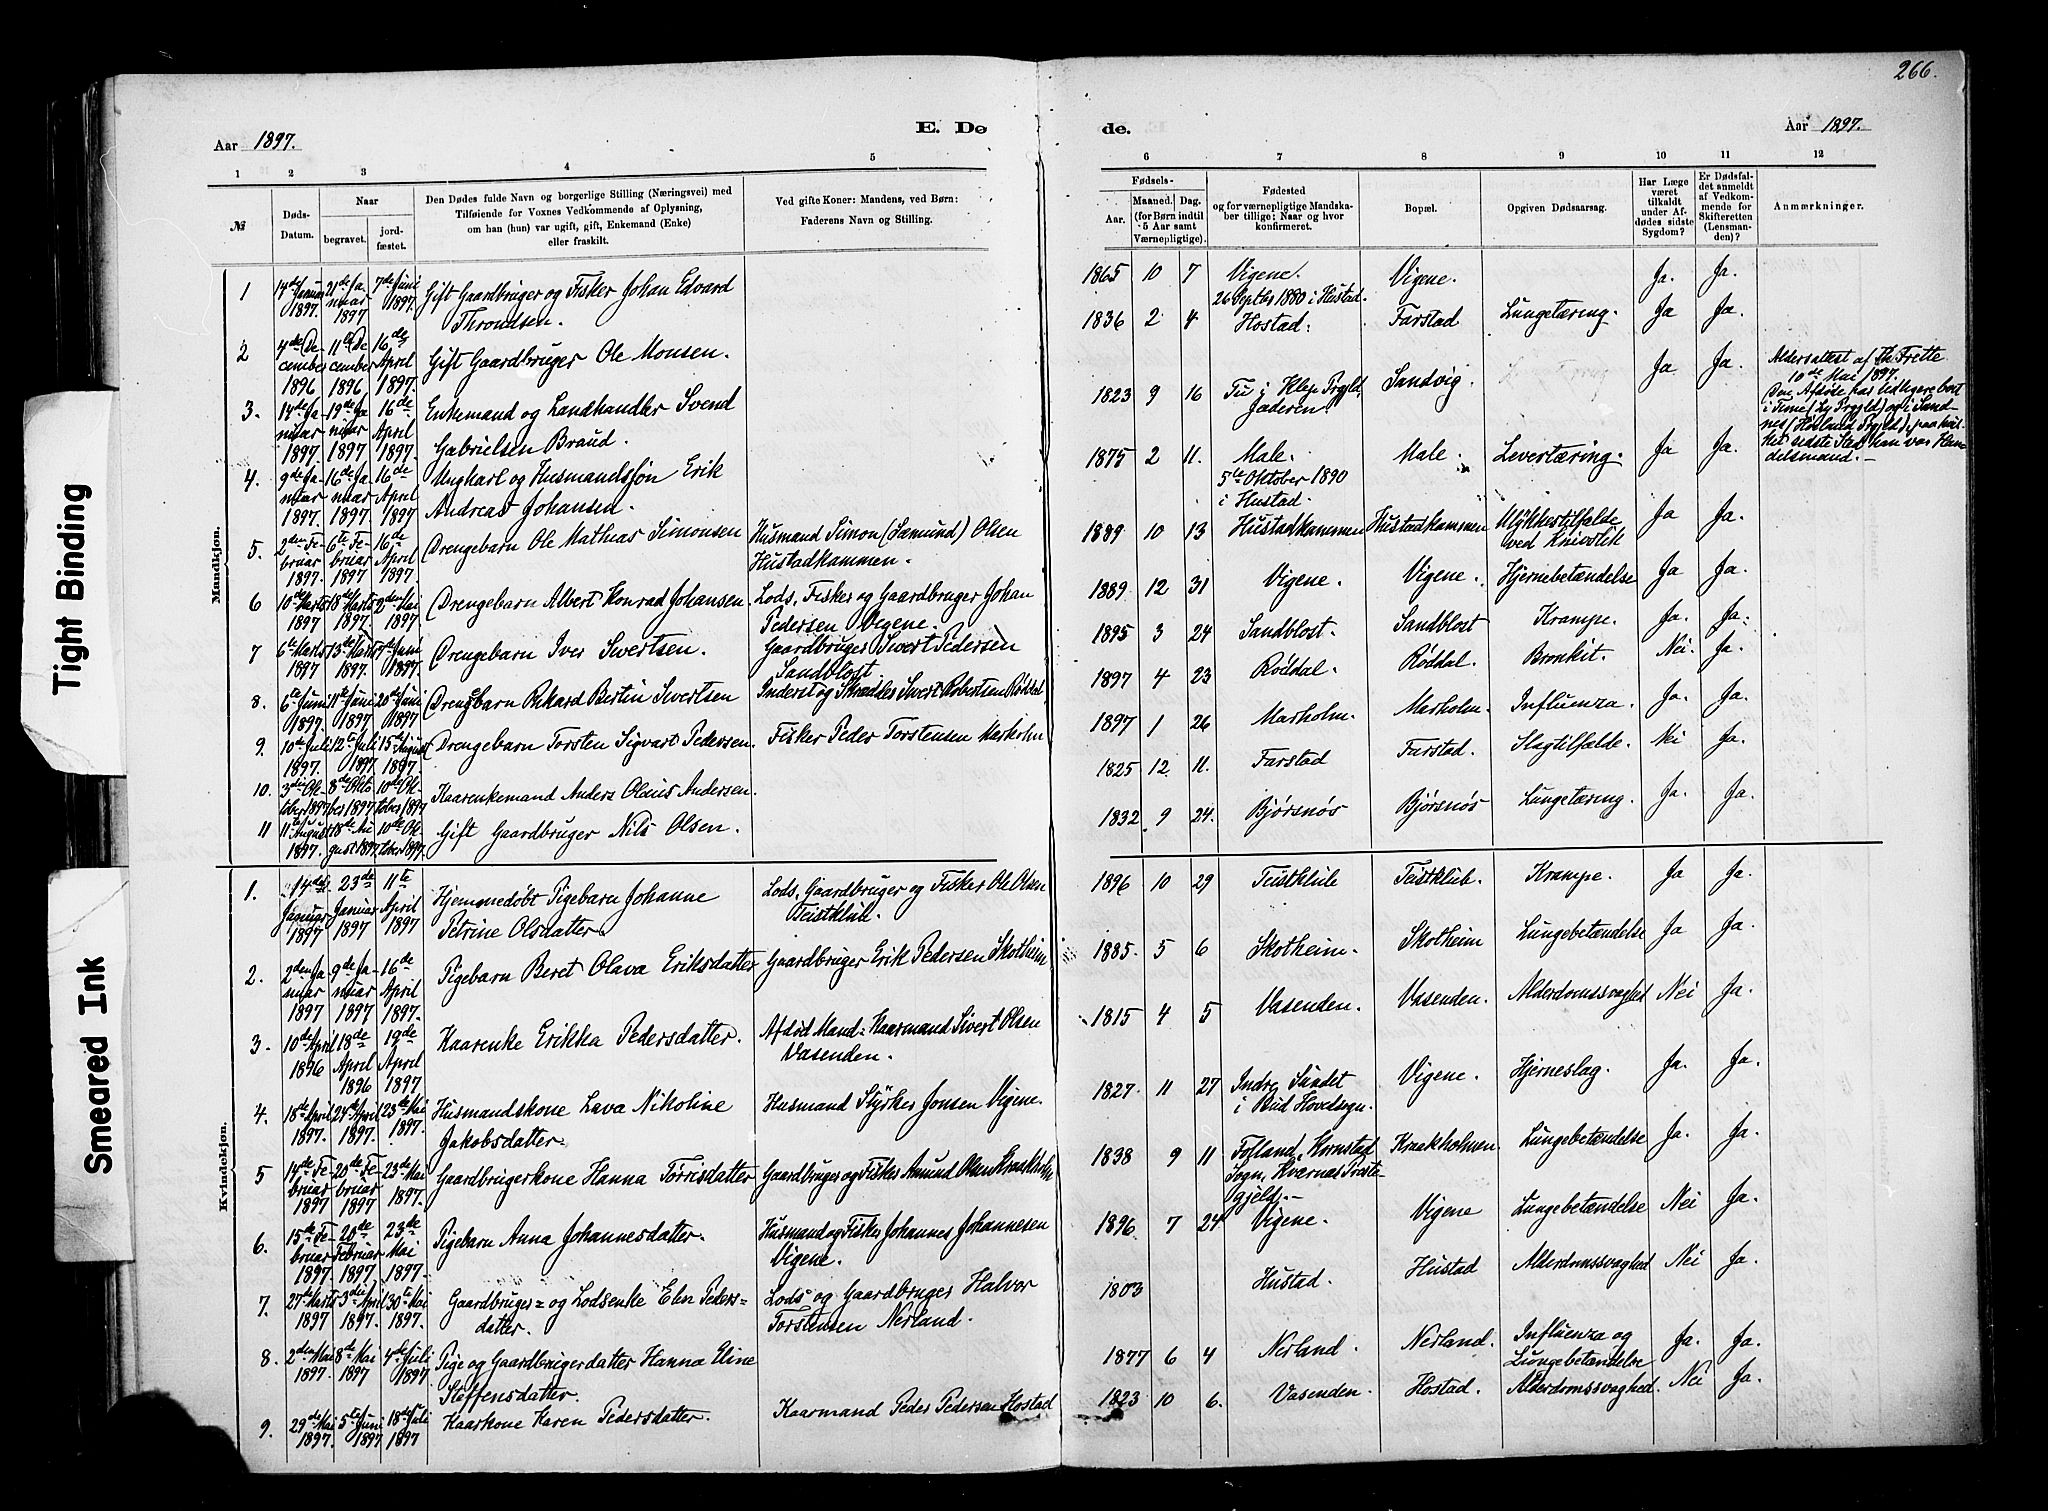 266.
Aar 1897.
E. Dø
de.
Aar 1897.
1 2 3 4 5 6 7 8 9 10 11 12
№
Døds-Datum.
Naar
begravet.
jord-fæstet.
Den Dødes fulde Navn og borgerlige Stilling (Næringsvei) med
Tilføiende for Voxnes Vedkommende af Oplysning,
om han (hun) var ugift, gift, Enkemand (Enke)
eller fraskilt.
Ved gifte Koner: Mandens, ved Børn:
Faderens Navn og Stilling.
Fødsels-
Aar.
Maaned. Dag.
(for Børn indtil
5 Aar samt
Værnepligtige).
Fødested
og for værnepligtige Mandska-
ber tillige: Naar og hvor
konfirmeret.
Bopæl.
Opgiven Dødsaarsag.
Har Læge
været
tilkaldt
under Af-
dødes sidste
Sygdom?
Er Dødsfal-
det anmeldt
af Vedkom-
mende for
Skifteretten
(Lensman-
den)?
Anmærkninger.
Mandkjøn.
1 14de Januar 1897. 21de Januar 1897 7de Juni 1897. Gift Gaardbruger og Fisker Johan Edvard
Throndsen.
1865 10 7 Vigene. Vigene. Ja. Ja.
26 Septbr 1880 i Hustad.
2 4de December 1896 11te December 1896 16de April 1897. Gift Gaardbruger Ole Monsen.
1836 2 4 Hostad. Farstad Lungetæring. Ja Ja.
3. 14de Januar 1897. 19de Januar 1897 16de April 1897. Enkemand og Landhandler Svend
Gabrielsen Braud.
1823 9 16 Tu i Klep Prgld, Sandvig Ja Ja.
Jæderen.
Aldersattest af Th. Frette
10de Mai 1897.
Den Afdøde har tidligere boet
i Time (Ly Prgld) og i Sand-
nes (Høiland Prgld), paa hvil-
ket sidste Sted han var Han-
delsmand.
4. 9de Januar 1897. 16de Januar 1897. 16de April 1897 Ungkarl og Husmandssøn Erik
Andreas Johansen.
1875 2 11. Male. Male. Levertæring. Ja Ja.
5te Oktober 1890
i Hustad.
5. 2den Februar 1897. 6te Februar 1897 16de April 1897 Drengebarn Ole Mathias Simonsen Husmand Simon (Samund) Olsen
Hustadkammen.
1889 10 13 Hustadkammen Hustadkammen Ulykkestilfælde Ja Ja.
ved Knivstik
6 10de Marts 1897 18de Marts 1897. 2den Mai 1897 Drengebarn Albert Konrad Johansen. Lods, Fisker og Gaardbruger Johan
Pedersen Vigene.
1889 12 31 Vigene. Vigene. Hjernebetændelse Ja Ja.
7 6te Marts 1897 13de Marts 1897. 7de Juni 1897. Drengebarn Iver Sivertsen. Gaardbruger Sivert Pedersen
Sandblost
1895 3 24 Sandblost. Sandblost Krampe. Ja. Ja.
8. 6te Juni 1897. 11te Juni 1897 20de Juni 1897 Drengebarn Rikard Bertin Sivertsen Inderst og Skrædder Sivert Robertsen Røddal
1897 4 23 Røddal. Røddal. Bronkit. Nei. Ja.
9. 10de Juli 1897. 12te Juli 1897 15de August 1897 Drengebarn Torsten Sigvart Pedersen. Fisker Peder Torstensen Marholm
1897 1 26 Marholm. Marholm. Influenza. Ja. Ja.
10. 3die Oktober 1897 8de Oktober 1897 10de Oktober 1897 Kaarenkemand Anders Olaus Andersen.
1825 12 11. Farstad Farstad. Slagtilfælde. Nei Ja.
11 11te August 1897. 18de August 1897 10de Oktober 1897. Gift Gaardbruger Nils Olsen.
1832 9 24. Bjørsnøs Bjørsnøs Lungetæring. Ja. Ja.
Kvindekjøn.
1. 14de Januar 1897 23de Januar 1897 11te April 1897 Hjemmedøbt Pigebarn Johanne
Petrine Olsdatter.
Lods, Gaardbruger og Fisker Ole Olsen
Teistklub.
1896 10 29 Teistklub Teistklub. Krampe. Ja Ja.
2. 2den Januar 1897 9de Januar 1897 16de April 1897. Pigebarn Beret Olava Eriksdatter Gaardbruger Erik Pedersen Skotheim
1885. 5 6 Skotheim. Skotheim Lungebetændelse Ja Ja.
3. 10de April 1896 18de April 1896 19de April 1897 Kaarenke Erikka Pedersdatter. Afdød Mand: Kaarmand Sivert Olsen
Vasenden.
1815 4 5 Vasenden. Vasenden. Alderdomssvaghed Nei Ja.
4. 18de April 1897. 24de April 1897. 23de Mai 1897. Husmandskone Lava Nikoline
Jakobsdatter.
Husmand Styrker Jonsen Vigene.
1827. 11 27 Indre Sundet Vigene. Hjerneslag. Ja. Ja.
i Bud Hovedsogn.
5 14de Februar 1897 20de Februar 1897 23de Mai 1897. Gaardbrugerkone Hanna Tørrisdatter Gaardbruger og Fisker Amund Olsen Kraakholm
1838 9 11 Folland, Kornstad Kraakholmen. Lungebetændelse Ja. Ja.
Sogn, Kværnes Præste-
gjeld.
6. 15de Februar 1897. 20de Februar 1897 23de Mai 1897. Pigebarn Anna Johannesdatter. Husmand og Fisker Johannes Johannesen
Vigene.
1896. 7 24 Vigene. Vigene Lungebetændelse Nei Ja.
7. 27de Marts 1897 3die April 1897. 30te Mai 1897. Gaardbruger= og Lodsenke Elen Peders=
datter.
Lods og Gaardbruger Halvor
Torstensen Nerland.
1803 Hustad. Hustad Alderdomssvaghed Nei Ja.
8. 2den Mai 1897. 8de Mai 1897 4de Juli 1897 Pige og Gaardbrugerdatter Hanna Eline
Steffensdatter.
1877 6 4 Nerland. Nerland. Influenza og Ja. Ja.
Lungebetændelse
9. 29de Mai 1897. 5te Juni 1897 18de Juli 1897 Kaarkone Karen Pedersdatter. Kaarmand Peder Pedersen Hostad
1823 10 6. Vasenden. Hostad. Alderdomssvaghed. Nei Ja.
Tight Binding
Smeared Ink